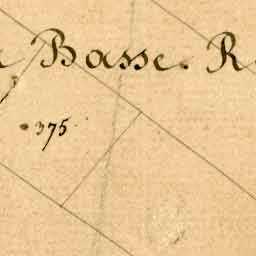 Basse. R
375